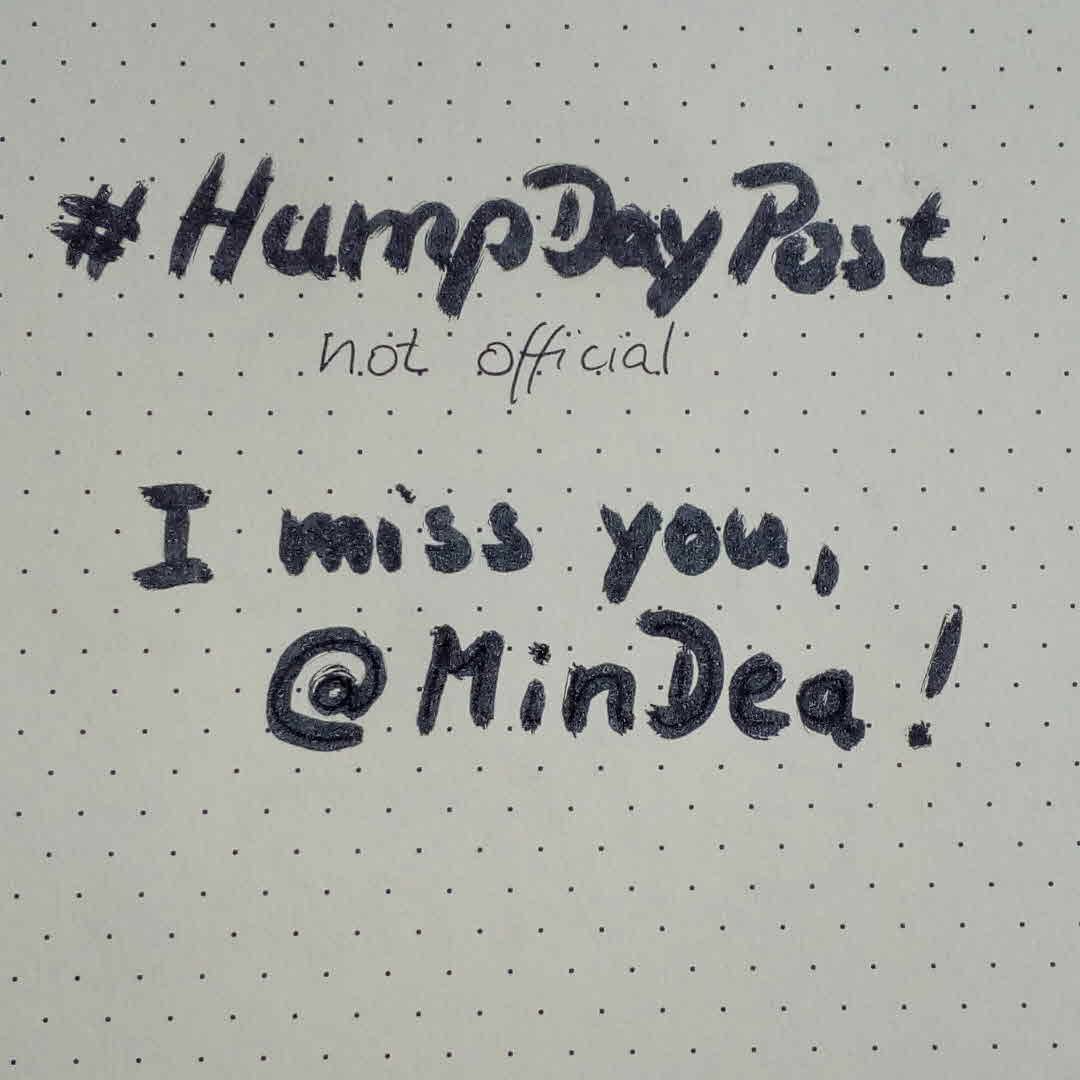 #HumpDayPost
not official
I miss you,
@MinDea!